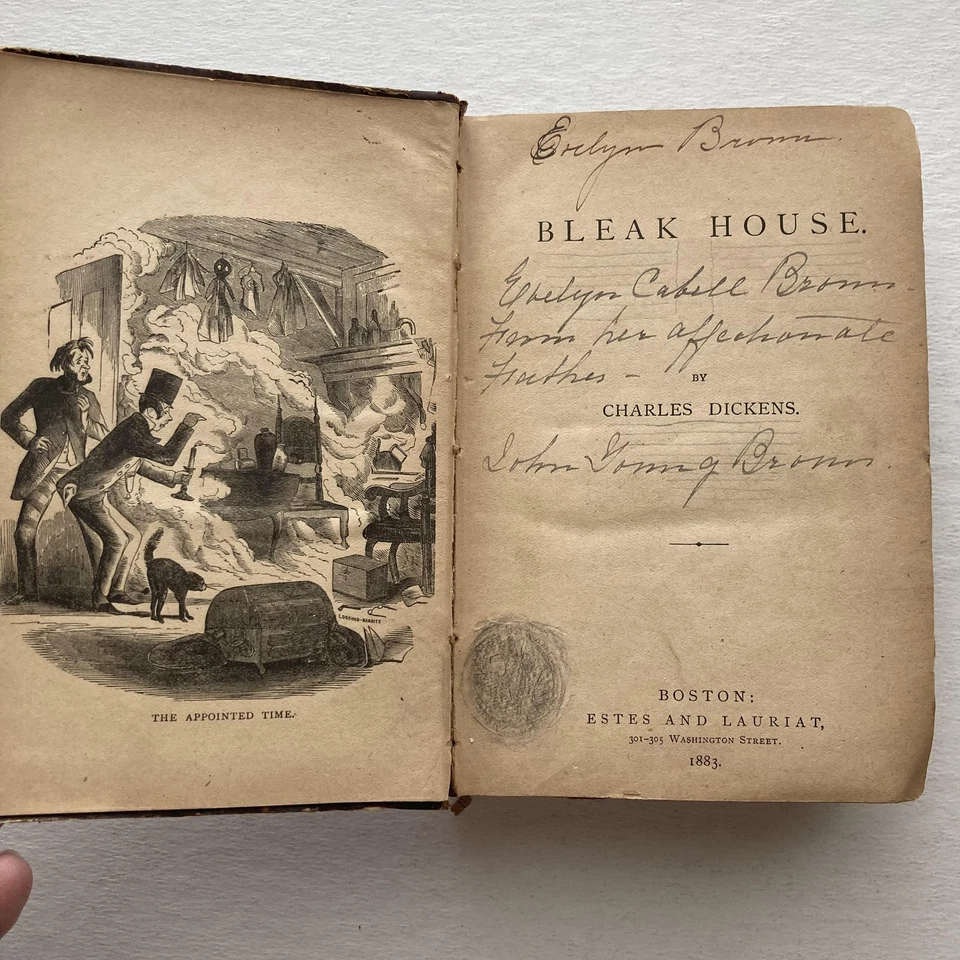 LOSSING-BARRITT
THE APPOINTED TIME.
Evelyn Brown.
BLEAK HOUSE.
Evelyn Cabell Brown -
From her affectionate
Father -
BY
CHARLES DICKENS.
John Young Brown.
BOSTON:
ESTES AND LAURIAT,
301-305 WASHINGTON STREET.
1883.